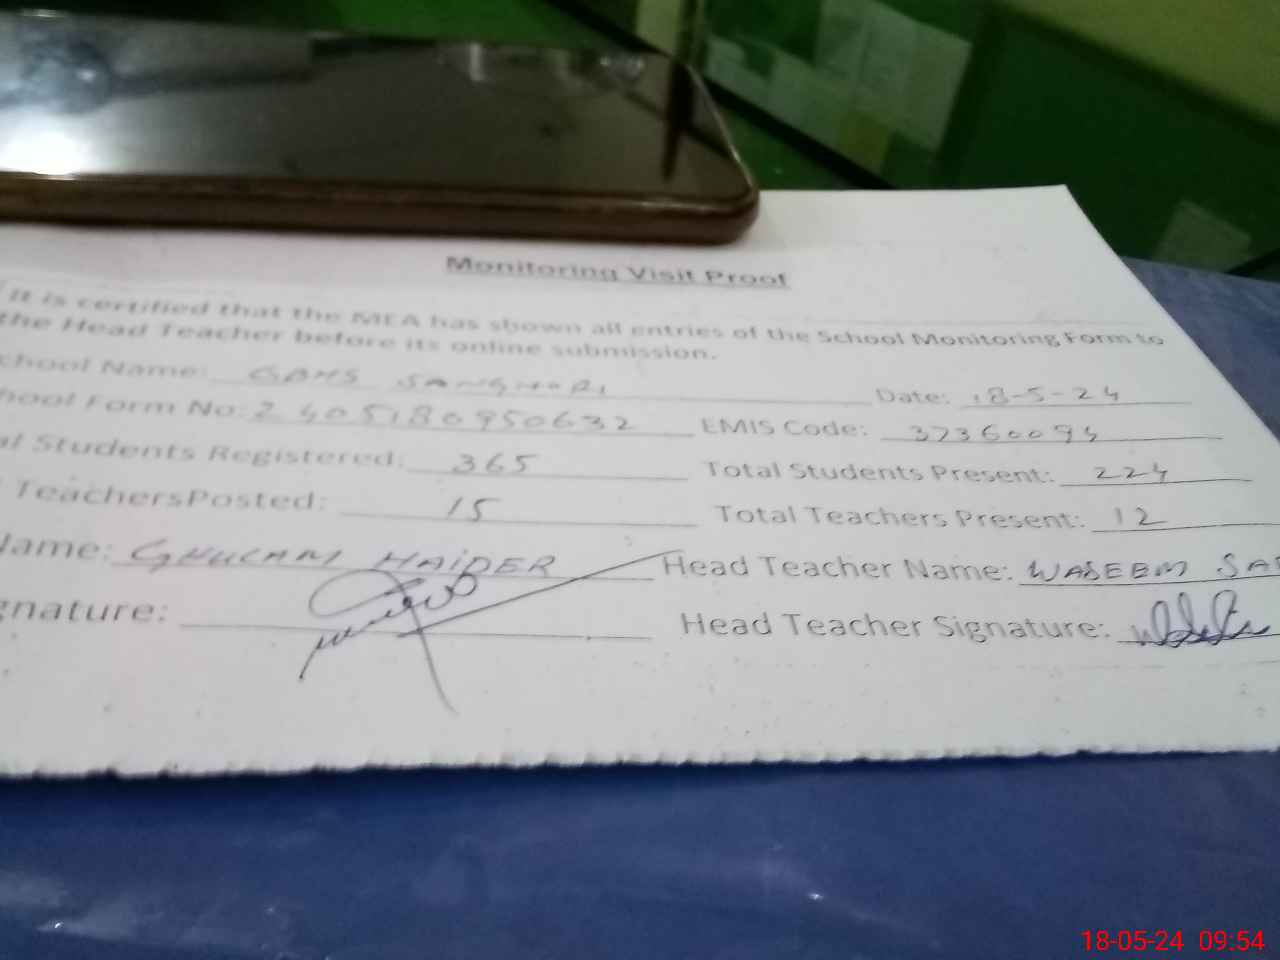 Monitoring Visit Proof
It is certified that the MEA has shown all entries of the School Monitoring Form to
the Head Teacher before its online submission.
chool Name: GBHS SANGHORI Date: 18-5-24
hool Form No: 2405180950632 EMIS Code: 37360094
al Students Registered: 365 Total Students Present: 224
TeachersPosted: 15 Total Teachers Present: 12
Name: GHULAM HAIDER Head Teacher Name: WASEEM SA
gnature: Head Teacher Signature:
18-05-24 09:54